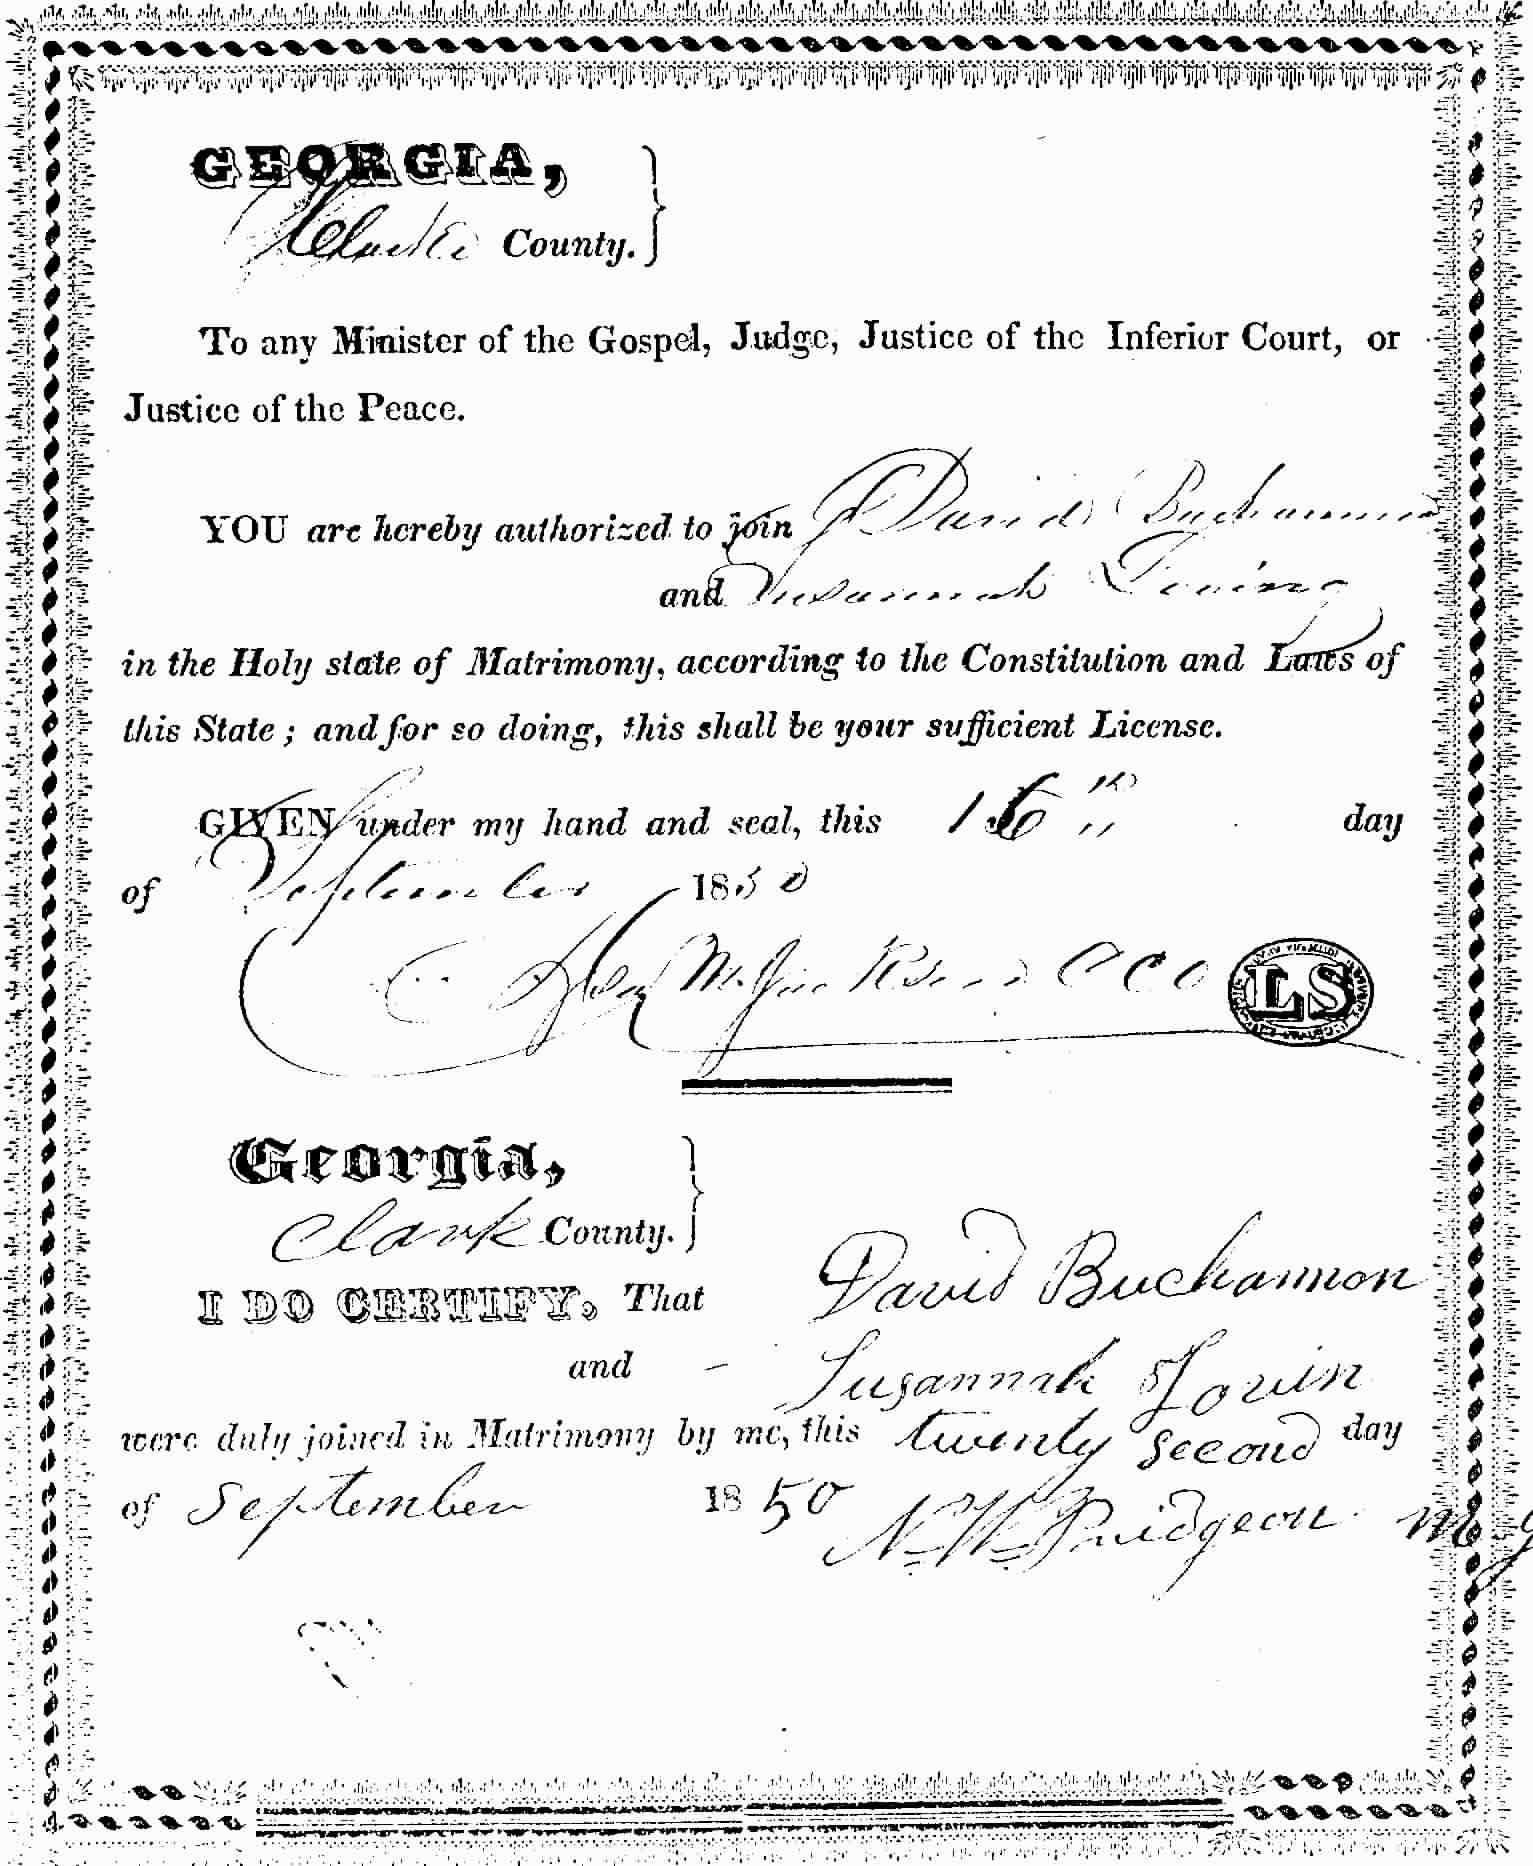 GEORGIA,
Clarke County.
To any Minister of the Gospel, Judge, Justice of the Inferior Court, or
Justice of the Peace.
YOU are hereby authorized to join David Buchannon
and Susannah
in the Holy state of Matrimony, according to the Constitution and Laws of
this State; and for so doing, this shall be your sufficient License.
GIVEN under my hand and seal, this 16th day
of September 1850
Asbury M. Jackson CCO LS
Georgia,
Clark County.
I DO CERTIFY, That David Buchannon
and Susannah
were duly joined in Matrimony by me, this twenty second day
of September 1850
N. W. Pridgeon